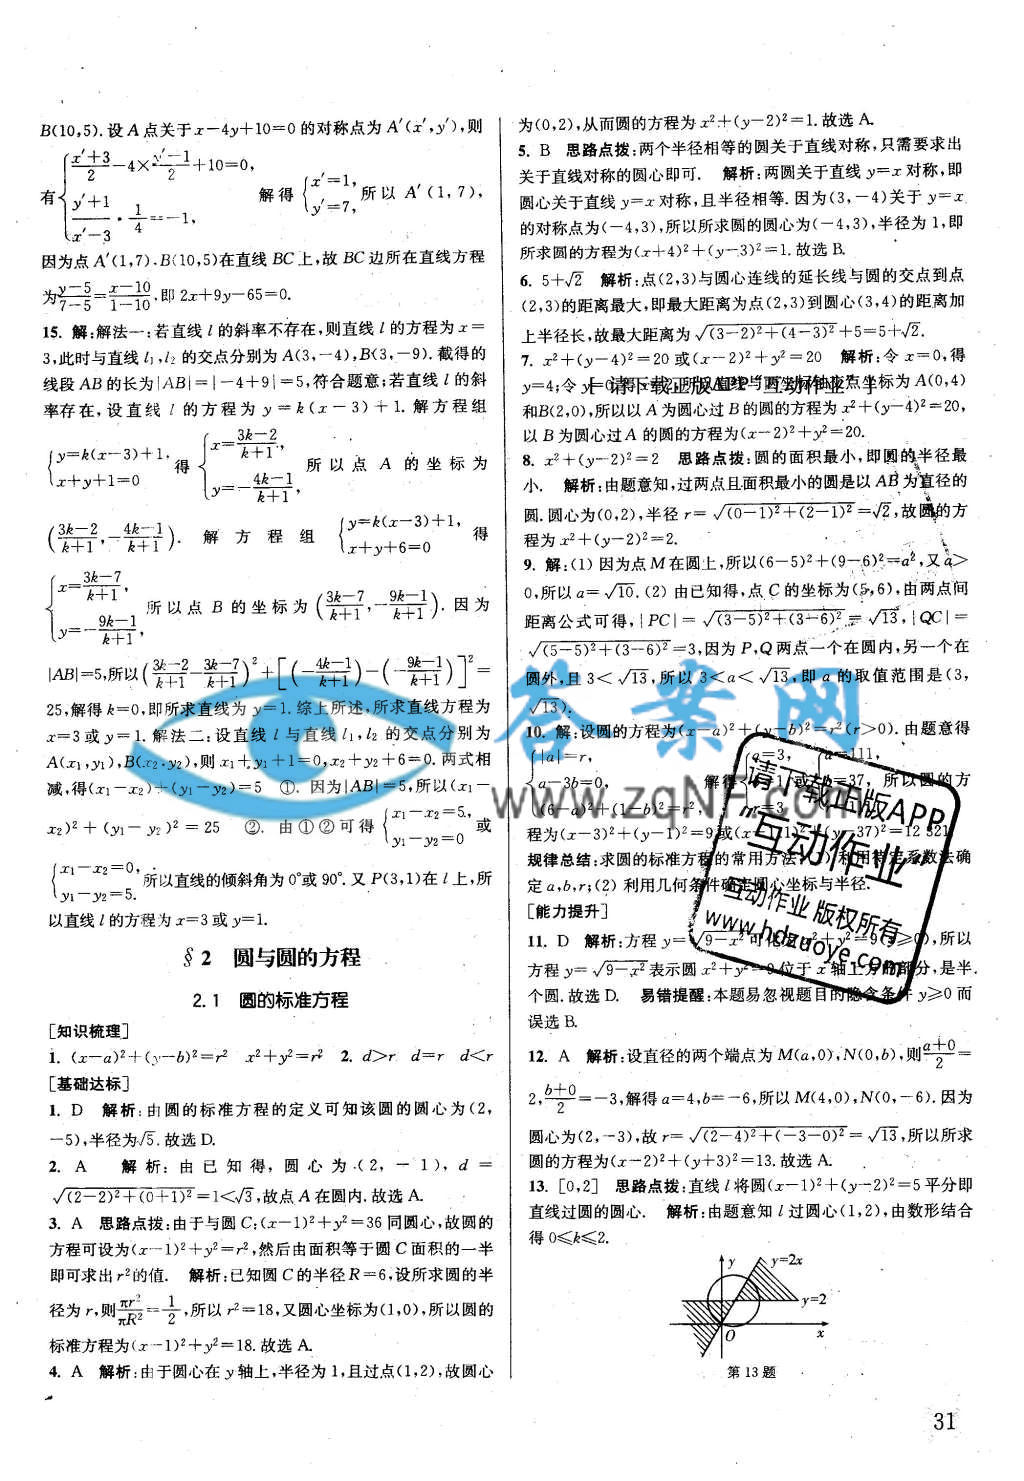 B(10,5).设A点关于x-4y+10=0的对称点为A′(x′,y′),则
有{(x′+3)/2-4×(y′-1)/2+10=0, (y′+1)/(x′-3)·1/4=-1, 解得{x′=1, y′=7, 所以A′(1,7),
因为点A′(1,7).B(10,5)在直线BC上,故BC边所在直线方程
为(y-5)/(7-5)=(x-10)/(1-10),即2x+9y-65=0.
15. 解:解法一:若直线l的斜率不存在,则直线l的方程为x=
3,此时与直线l₁,l₂的交点分别为A(3,-4),B(3,-9).截得的
线段AB的长为|AB|=|-4+9|=5,符合题意;若直线l的斜
率存在,设直线l的方程为y=k(x-3)+1.解方程组
{y=k(x-3)+1, x+y+1=0 得 {x=(3k-2)/(k+1), y=-(4k-1)/(k+1), 所以点A的坐标为
((3k-2)/(k+1),-(4k-1)/(k+1)).解方程组{y=k(x-3)+1, x+y+6=0 得
{x=(3k-7)/(k+1), y=-(9k-1)/(k+1), 所以点B的坐标为((3k-7)/(k+1),-(9k-1)/(k+1)).因为
|AB|=5,所以((3k-2)/(k+1)-(3k-7)/(k+1))²+[(-(4k-1)/(k+1))-(-(9k-1)/(k+1))]²=
25,解得k=0,即所求直线为y=1.综上所述,所求直线方程为
x=3或y=1.解法二:设直线l与直线l₁,l₂的交点分别为
A(x₁,y₁),B(x₂,y₂),则x₁+y₁+1=0,x₂+y₂+6=0.两式相
减,得(x₁-x₂)+(y₁-y₂)=5 ①.因为|AB|=5,所以(x₁-
x₂)²+(y₁-y₂)²=25 ②.由①②可得{x₁-x₂=5, y₁-y₂=0 或
{x₁-x₂=0, y₁-y₂=5. 所以直线的倾斜角为0°或90°.又P(3,1)在l上,所
以直线l的方程为x=3或y=1.
§2 圆与圆的方程
2.1 圆的标准方程
[知识梳理]
1. (x-a)²+(y-b)²=r² x²+y²=r² 2. d>r d=r d<r
[基础达标]
1. D 解析:由圆的标准方程的定义可知该圆的圆心为(2,
-5),半径为√5.故选D.
2. A 解析:由已知得,圆心为(2,-1),d=
√((2-2)²+(0+1)²)=1<√3,故点A在圆内.故选A.
3. A 思路点拨:由于与圆C:(x-1)²+y²=36同圆心,故圆的
方程可设为(x-1)²+y²=r²,然后由面积等于圆C面积的一半
即可求出r²的值. 解析:已知圆C的半径R=6,设所求圆的半
径为r,则πr²/πR²=1/2,所以r²=18,又圆心坐标为(1,0),所以圆的
标准方程为(x-1)²+y²=18.故选A.
4. A 解析:由于圆心在y轴上,半径为1,且过点(1,2),故圆心
为(0,2),从而圆的方程为x²+(y-2)²=1.故选A.
5. B 思路点拨:两个半径相等的圆关于直线对称,只需要求出
关于直线对称的圆心即可. 解析:两圆关于直线y=x对称,即
圆心关于直线y=x对称,且半径相等.因为(3,-4)关于y=x
的对称点为(-4,3),所以所求圆的圆心为(-4,3),半径为1,即
所求圆的方程为(x+4)²+(y-3)²=1.故选B.
6. 5+√2 解析:点(2,3)与圆心连线的延长线与圆的交点到点
(2,3)的距离最大,即最大距离为点(2,3)到圆心(3,4)的距离加
上半径长,故最大距离为√((3-2)²+(4-3)²)+5=5+√2.
7. x²+(y-4)²=20或(x-2)²+y²=20 解析:令x=0,得
y=4;令 [ 请下载正版APP“互动作业” ] 点坐标为A(0,4)
和B(2,0),所以以A为圆心过B的圆的方程为x²+(y-4)²=20,
以B为圆心过A的圆的方程为(x-2)²+y²=20.
8. x²+(y-2)²=2 思路点拨:圆的面积最小,即圆的半径最
小. 解析:由题意知,过两点且面积最小的圆是以AB为直径的
圆.圆心为(0,2),半径r=√((0-1)²+(2-1)²)=√2,故圆的方
程为x²+(y-2)²=2.
9. 解:(1) 因为点M在圆上,所以(6-5)²+(9-6)²=a²,又a>
0,所以a=√10.(2) 由已知得,点C的坐标为(5,6),由两点间
距离公式可得,|PC|=√((3-5)²+(3-6)²)=√13,|QC|=
√((5-5)²+(3-6)²)=3,因为P,Q两点一个在圆内,另一个在
圆外,且3<√13,所以3<a<√13,即a的取值范围是(3,
√13).
10. 解:设圆的方程为(x-a)²+(y-b)²=r²(r>0).由题意得
{|a|=r, a-3b=0, (6-a)²+(1-b)²=r², 解得{a=3, b=1, r=3 或{a=111, b=37, 所以圆的方
程为(x-3)²+(y-1)²=9或(x-111)²+(y-37)²=12 321.
规律总结:求圆的标准方程的常用方法:(1) 利用待定系数法确
定a,b,r;(2) 利用几何条件确定圆心坐标与半径.
[能力提升]
11. D 解析:方程y=√(9-x²)可化为x²+y²=9(y≥0),所以
方程y=√(9-x²)表示圆x²+y²=9位于x轴上方的部分,是半
个圆.故选D. 易错提醒:本题易忽视题目的隐含条件y≥0而
误选B.
12. A 解析:设直径的两个端点为M(a,0),N(0,b),则(a+0)/2=
2,(b+0)/2=-3,解得a=4,b=-6,所以M(4,0),N(0,-6).因为
圆心为(2,-3),故r=√((2-4)²+(-3-0)²)=√13,所以所求
圆的方程为(x-2)²+(y+3)²=13.故选A.
13. [0,2] 思路点拨:直线l将圆(x-1)²+(y-2)²=5平分即
直线过圆的圆心. 解析:由题意知l过圆心(1,2),由数形结合
得0≤k≤2.
y y=2x
y=2
O x
第13题
31
答案网
www.zqNF.com
请下载正版APP
“互动作业”
互动作业 版权所有
www.hdzuoye.com